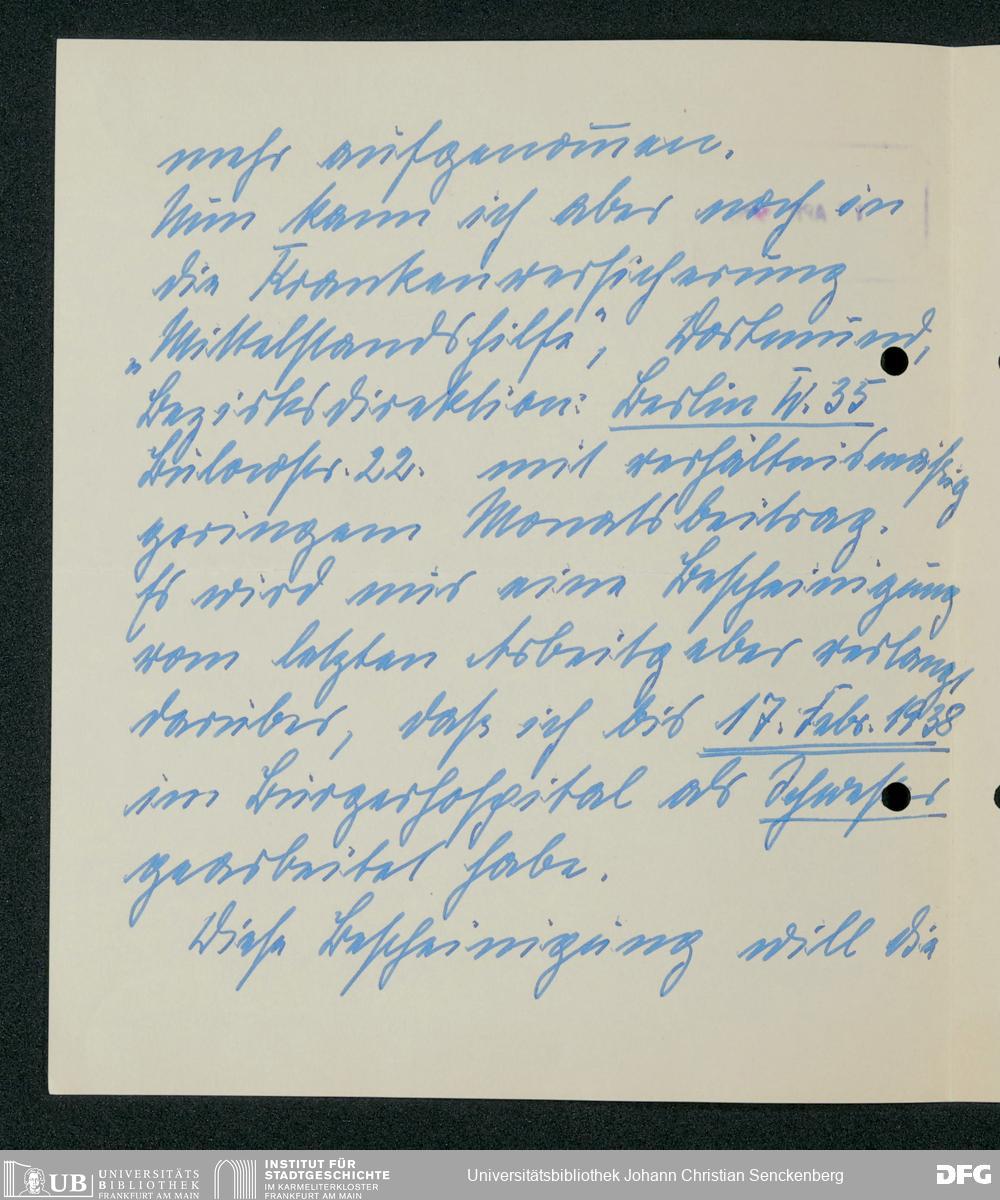 mehr aufgenom̅en.
Nun kann ich aber noch in
die Krankenversicherung
„Mittelstandshilfe“, Dortmund,
Bezirksdirektion: Berlin W. 35
Bülowstr. 22. mit verhältnismäßig
geringem Monatsbeitrag.
Es wird mir eine Bescheinigung
vom letzten Arbeitgeber verlangt
darüber, daß ich bis 17. Febr. 1938
im Bürgerhospital als Schwester
gearbeitet habe.
Diese Bescheinigung will die
UB UNIVERSITÄTS
BIBLIOTHEK
FRANKFURT AM MAIN
INSTITUT FÜR
STADTGESCHICHTE
IM KARMELITERKLOSTER
FRANKFURT AM MAIN
Universitätsbibliothek Johann Christian Senckenberg
DFG